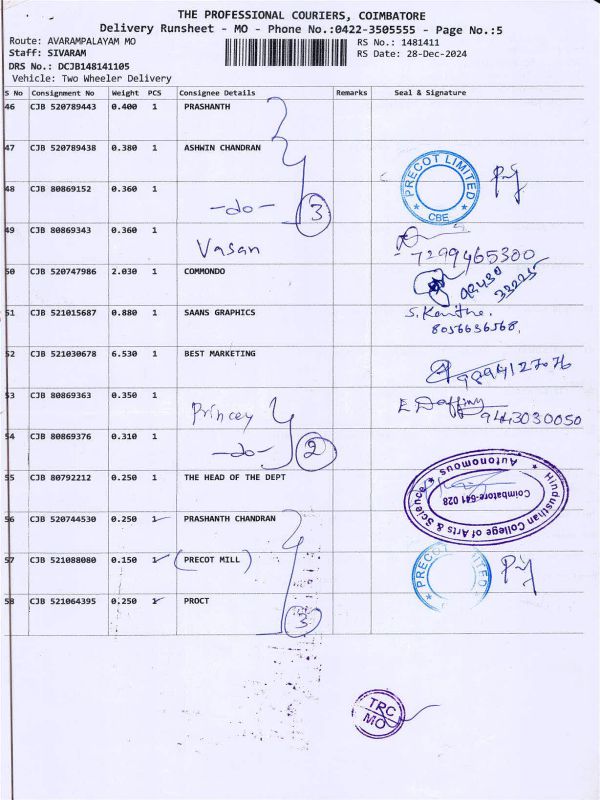 THE PROFESSIONAL COURIERS, COIMBATORE
Delivery Runsheet - MO - Phone No.:0422-3505555 - Page No.:5
Route: AVARAMPALAYAM MO RS No.: 1481411
Staff: SIVARAM RS Date: 28-Dec-2024
DRS No.: DCJB148141105
Vehicle: Two Wheeler Delivery
S No Consignment No Weight PCS Consignee Details Remarks Seal & Signature
46 CJB 520789443 0.400 1 PRASHANTH
47 CJB 520789438 0.380 1 ASHWIN CHANDRAN
PRECOT LIMITED
CBE
48 CJB 80869152 0.360 1
-do- 3
49 CJB 80869343 0.360 1
Vasan 7299465300
50 CJB 520747986 2.030 1 COMMONDO
51 CJB 521015687 0.880 1 SAANS GRAPHICS
8056636568
52 CJB 521030678 6.530 1 BEST MARKETING
53 CJB 80869363 0.350 1
Princey
9443030050
54 CJB 80869376 0.310 1
-do- 2
55 CJB 80792212 0.250 1 THE HEAD OF THE DEPT
Hindusthan College of Arts & Science
Autonomous
Coimbatore-641 028
56 CJB 520744530 0.250 1 PRASHANTH CHANDRAN
57 CJB 521088080 0.150 1 (PRECOT MILL)
PRECOT LIMITED
58 CJB 521064395 0.250 1 PROCT
3
TRC
MO